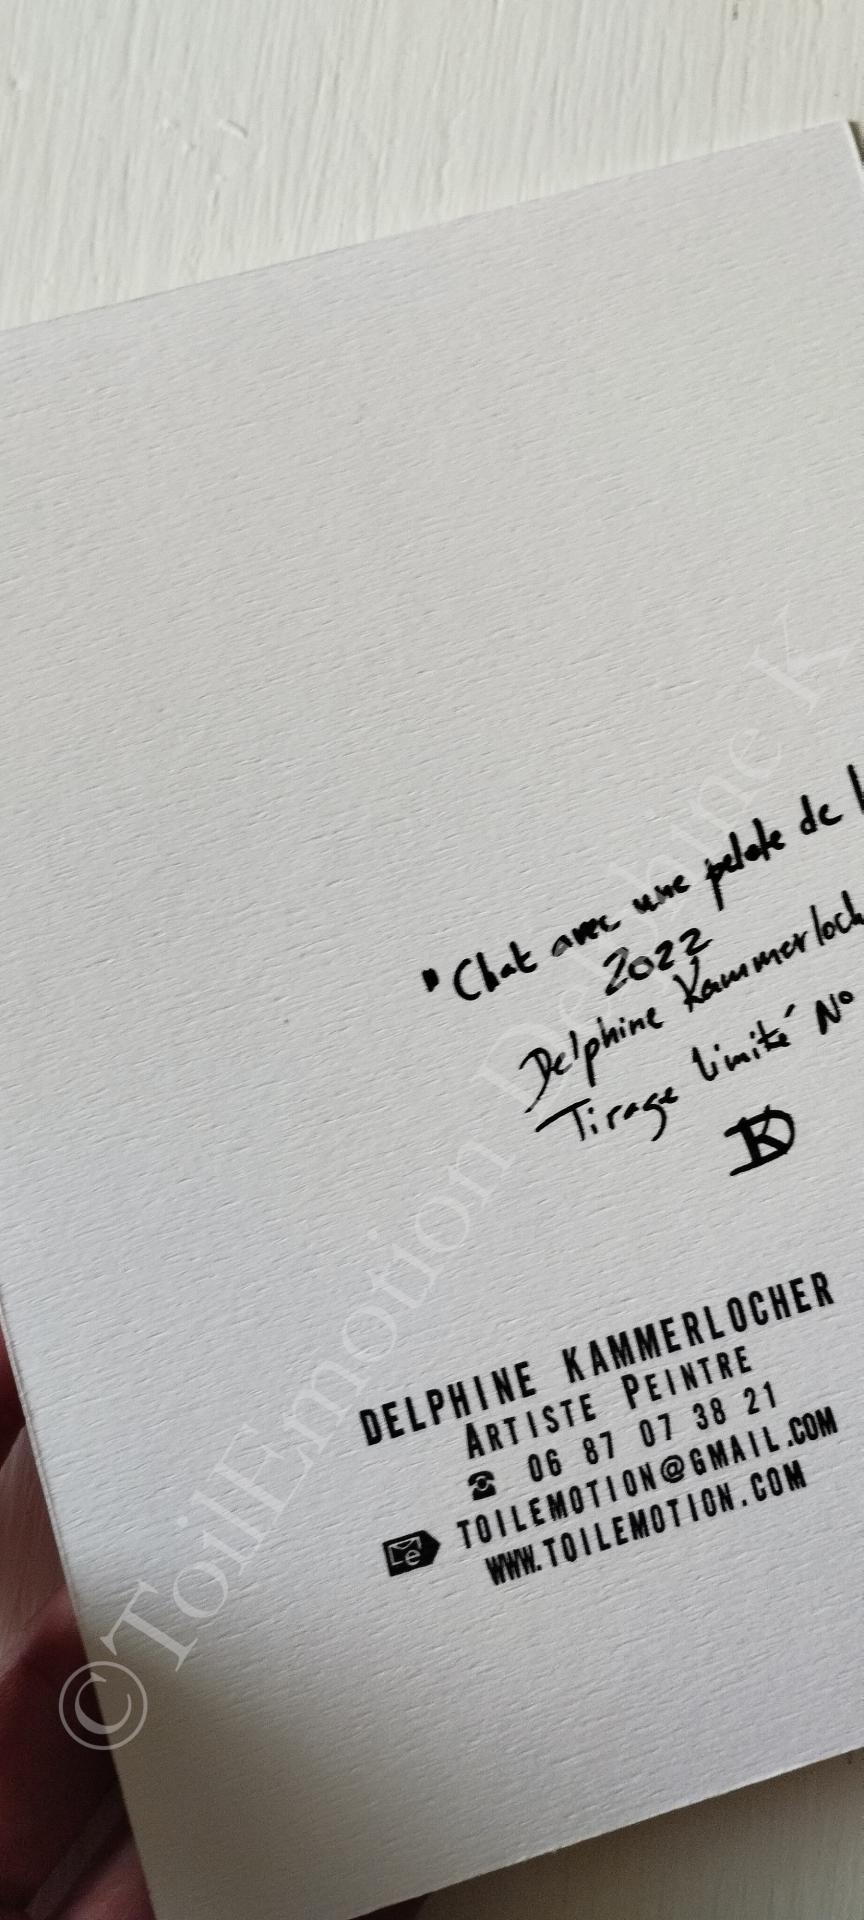 "Chat avec une pelote de
2022
Delphine Kammerloch
Tirage limité N°
DK
DELPHINE KAMMERLOCHER
ARTISTE PEINTRE
06 87 07 38 21
TOILEMOTION@GMAIL.COM
WWW.TOILEMOTION.COM
©ToilEmotion Delphine K